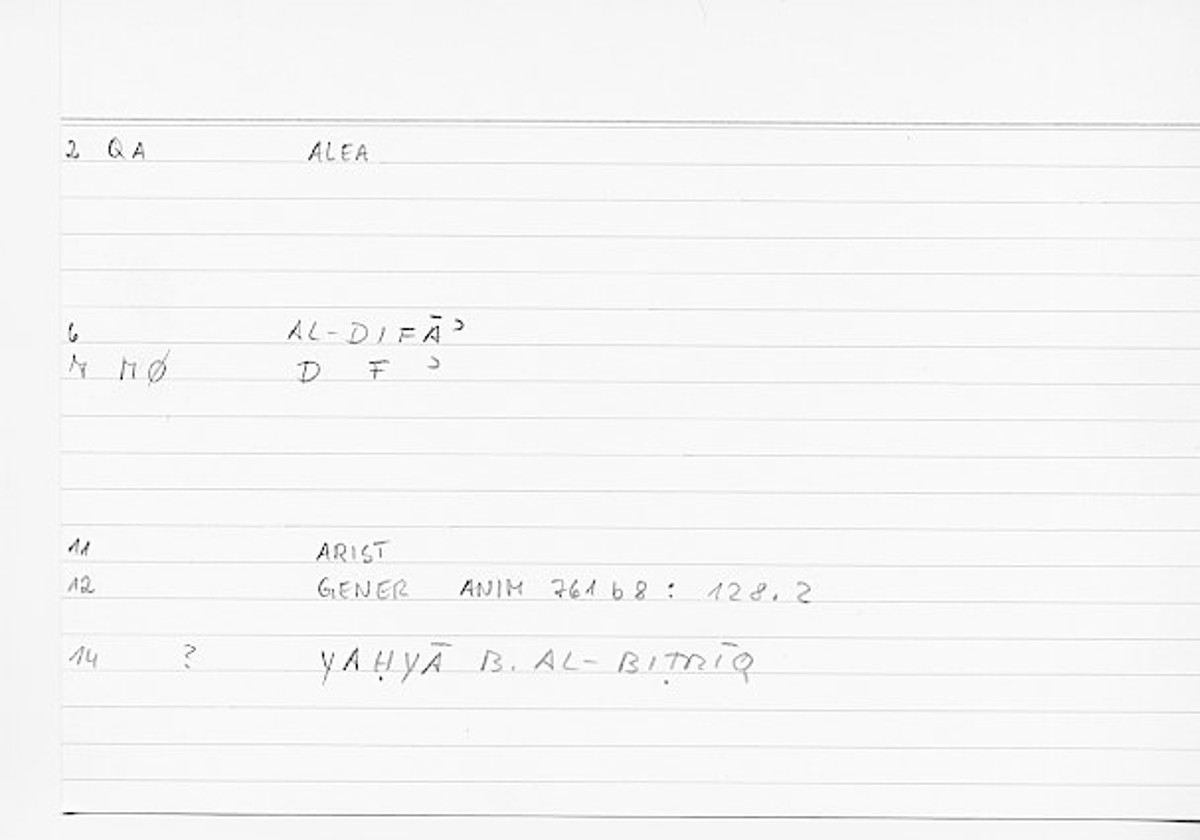 2 QA ALEA
6 AL-DIFĀʾ
7 MØ D F ʾ
11 ARIST
12 GENER ANIM 761b8: 128.2
14 ? YAḤYĀ B. AL-BIṬRĪQ